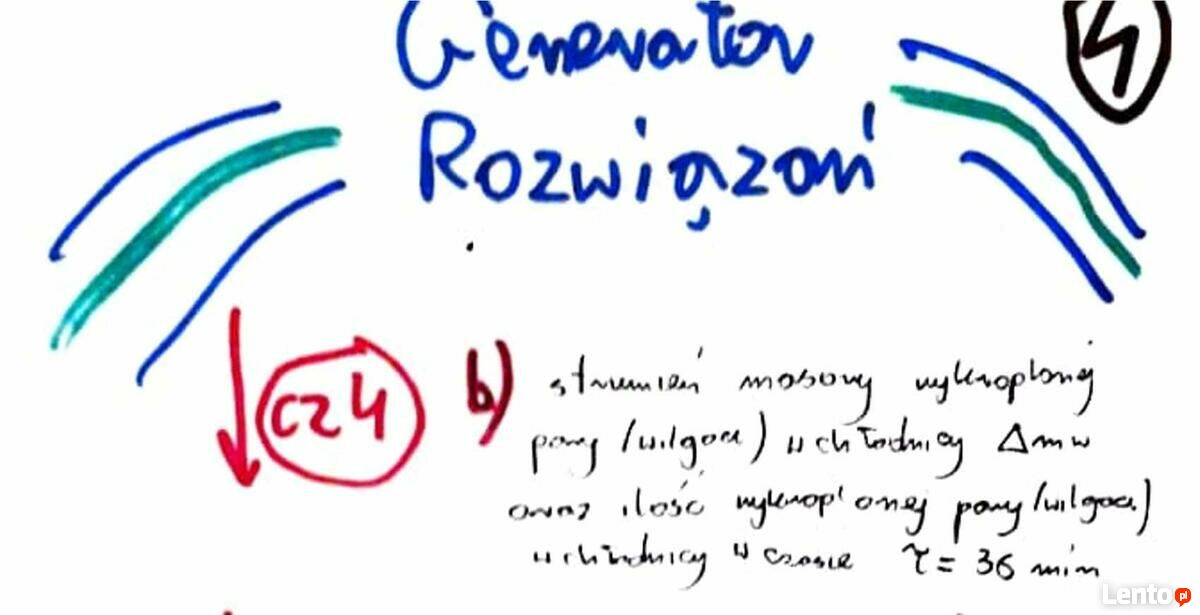 Generator
4
Rozwiązań
cz4
b) strumień masowy wykroplonej
pary /wilgoci) w chłodnicy Δmw
oraz ilość wykroplonej pary /wilgoci)
w chłodnicy w czasie τ = 36 min
Lento.pl